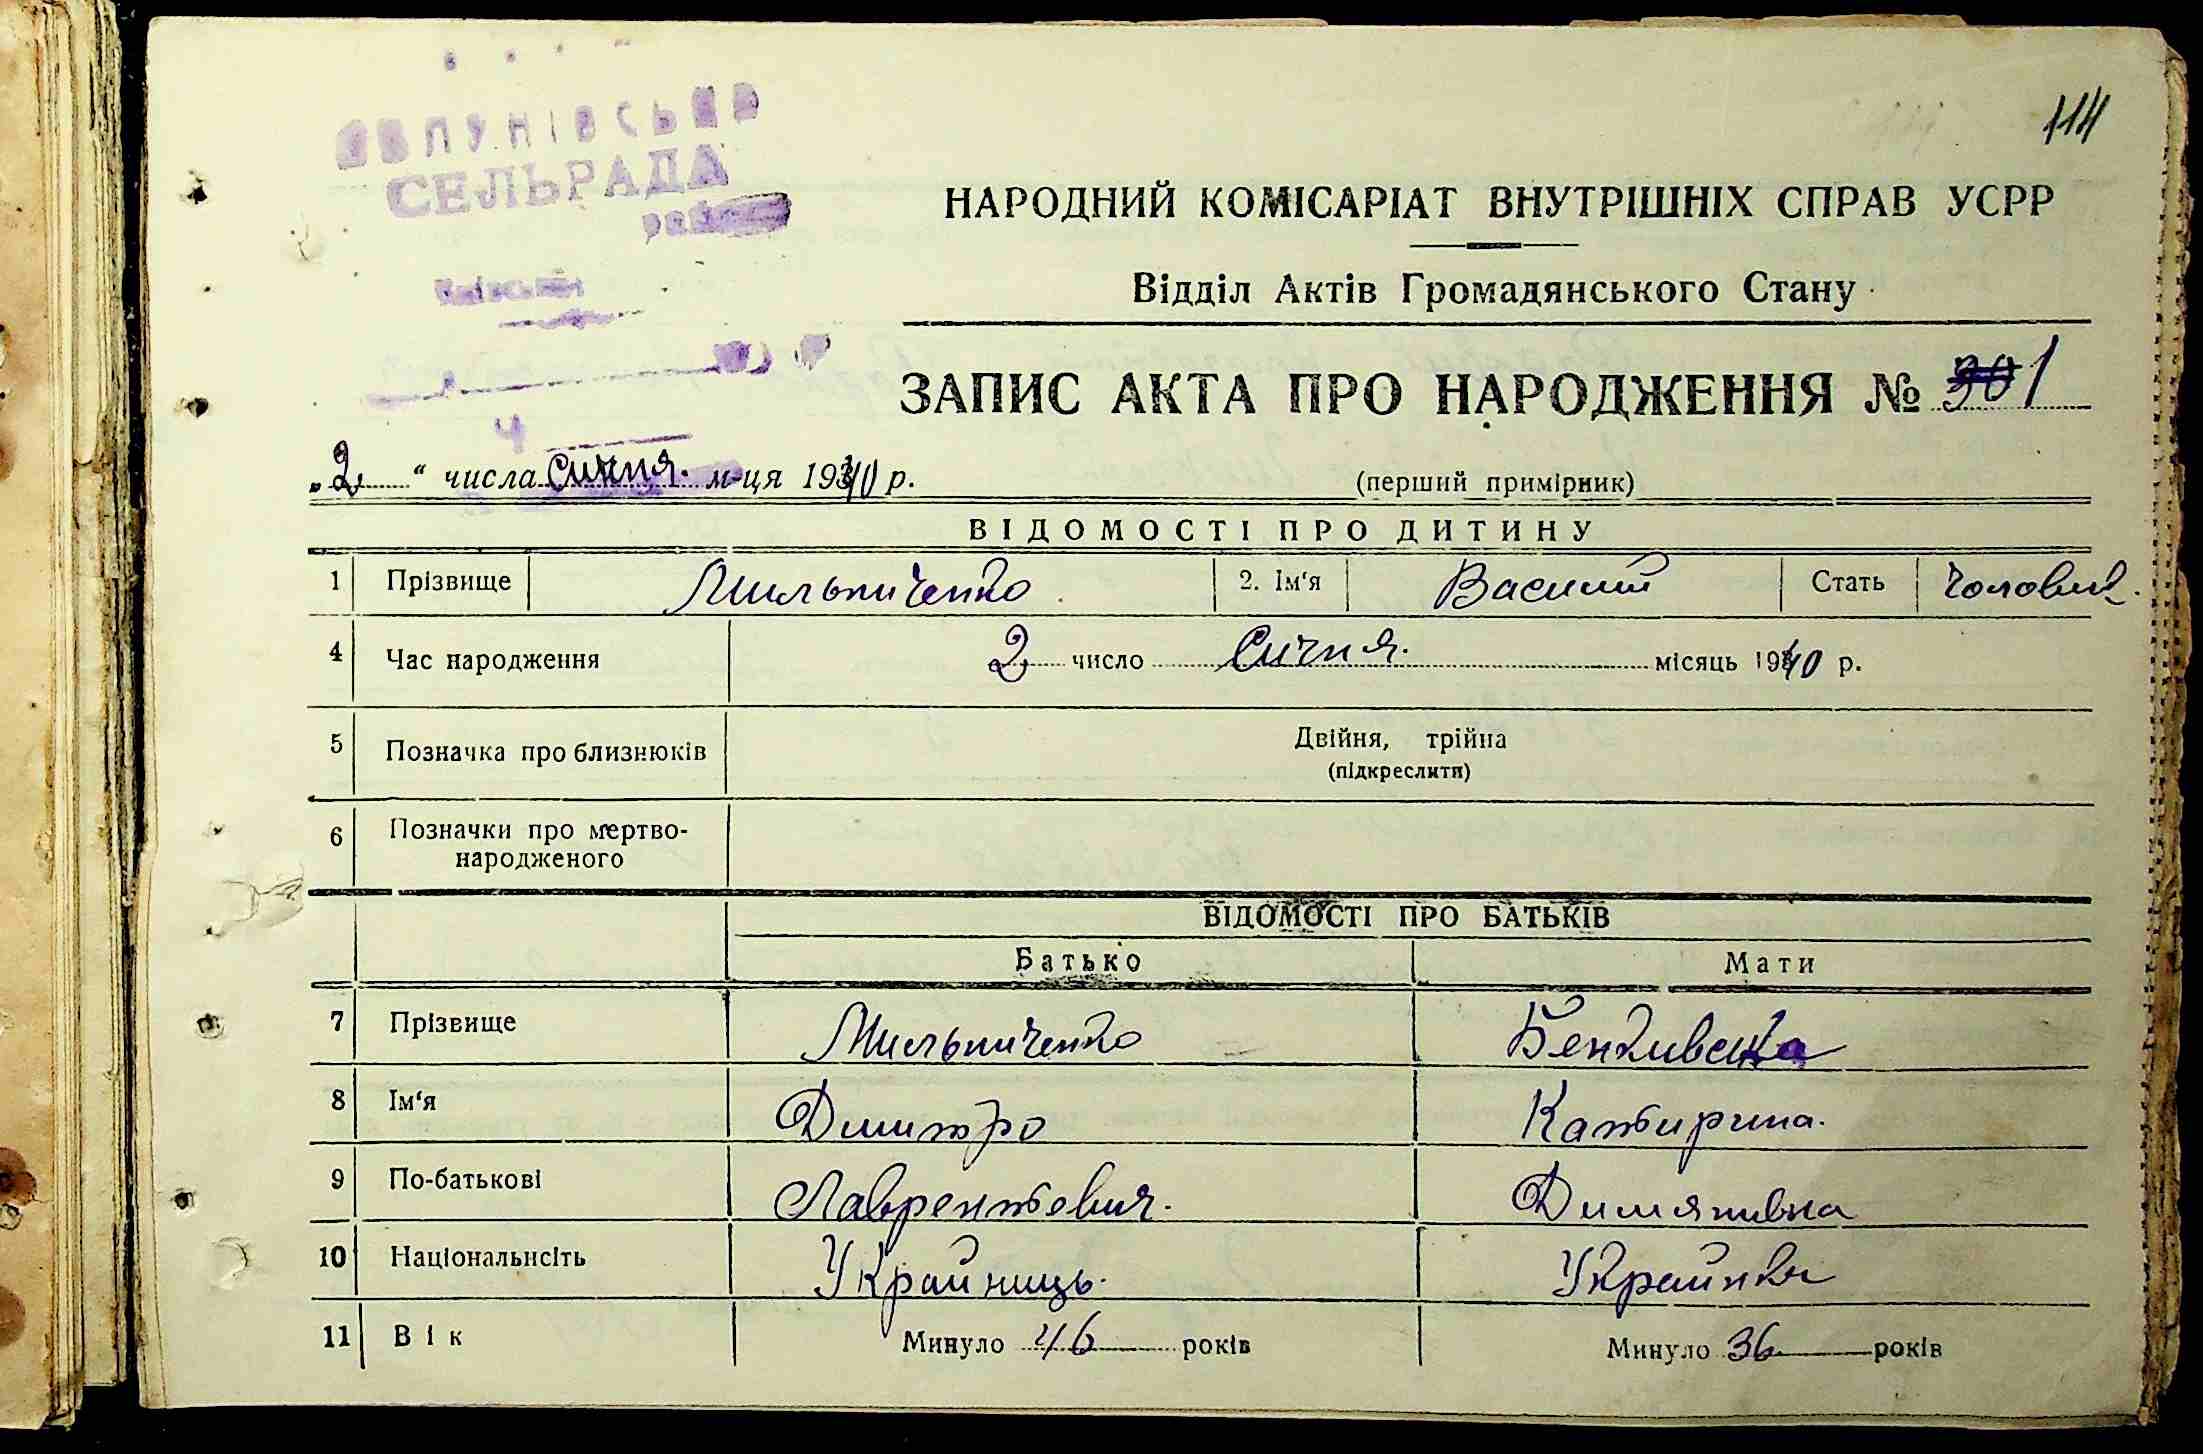 114
СЕЛЬРАДА
НАРОДНИЙ КОМІСАРІАТ ВНУТРІШНІХ СПРАВ УСРР
Відділ Актів Громадянського Стану
ЗАПИС АКТА ПРО НАРОДЖЕННЯ № 1
„2“ числа Сичня. м-ця 1940 р. (перший примірник)
ВІДОМОСТІ ПРО ДИТИНУ
1 Прізвище Мильниченко 2. Ім'я Василий Стать Чолович.
4 Час народження 2 число Сичня. місяць 1940 р.
5 Позначка про близнюків Двійня, трійна
(підкреслити)
6 Позначки про мертво-
народженого
ВІДОМОСТІ ПРО БАТЬКІВ
Батько Мати
7 Прізвище Мильниченко
8 Ім'я Дмитро Катирина.
9 По-батькові Лаврентевич.
10 Національнсіть Украйниць. Украйнка
11 Вік Минуло 46 років Минуло 36 років